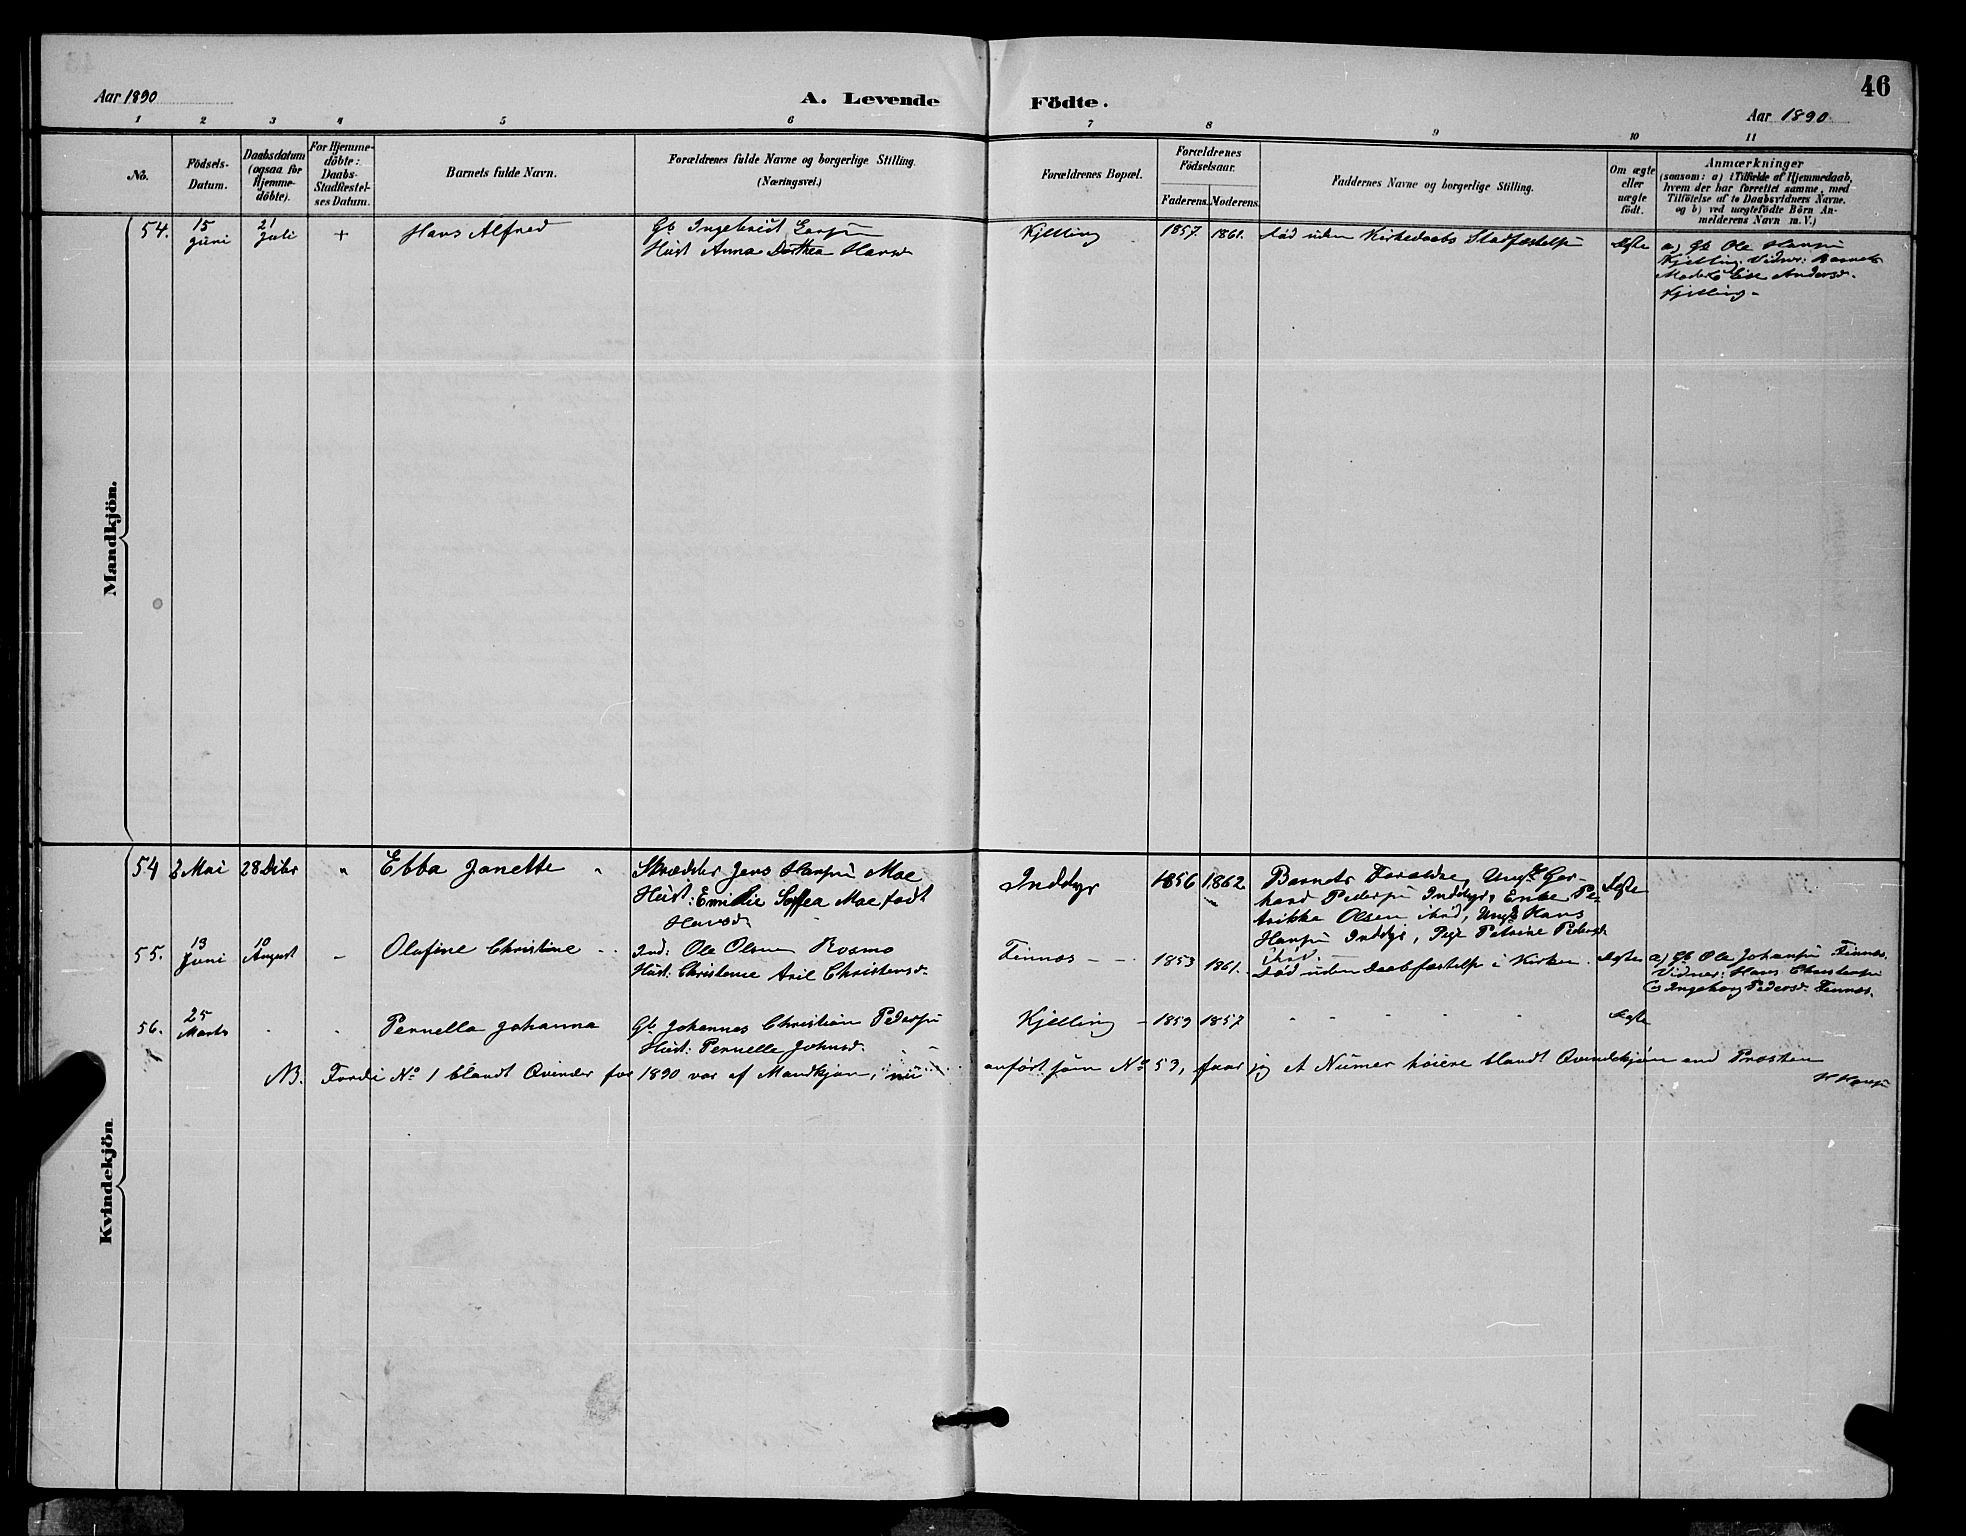 46
Aar 1890
A. Levende Födte.
Aar 1890
1 2 3 4 5 6 7 8 9 10 11
No.
Födsels-Datum.
Daabsdatum (ogsaa for Hjemme-döbte).
For Hjemme-döbte: Daabs-Stadfæstel-ses Datum.
Barnets fulde Navn.
Forældrenes fulde Navne og borgerlige Stilling.
(Næringsvei.)
Forældrenes Bopæl.
Forældrenes Födselsaar.
Faderens. Moderens.
Faddernes Navne og borgerlige Stilling.
Om ægte eller uægte födt.
Anmærkninger
(saasom: a) i Tilfælde af Hjemmedaab,
hvem der har forrettet samme, med
Tilföielse af to Daabsvidners Navne,
og b) ved uægtefödte Börn An-
melderens Navn m. V.)
Mandkjön.
54. 15 Juni 21 Juli + Hans Alfred
Gb Ingebrigt
Hust Anna Dorthea Hansd.
Kjelling 1857. 1861. død uden Kirkedaabs Stadfæstelse Ægte
a) Gb Ole Hansen
Kjelling. Vidner: Barnets
Moder & Andersd.
Kjelling.
Kvindekjön.
54 2 Mai 28 Dcbr " Ebba Janette "
Skrædder Jens Hansen Moe
Hust: Emilie Moe født
Hansd.
Inddyr 1856 1862
Barnets Forældre, Ungk Ger-
hard Pedersen Inddyr, Enke Pe-
trikke Olsen ibid, Ungk Hans
Hansen Inddyr, Pige Petrine Pedersd.
ibid.
Ægte
55. 13 Juni 10 August – Olufine Christine
Ind: Ole Olsen Rosmo
Hust: Christensd.
Finnes 1853 1861. Død uden Daabfæstelse i Kirken. Ægte
a) Gb Ole Johansen Finnes.
Vidner: Hans
Ingeborg Pedersd. Finnes.
56. 25 Marts " " Pernella Johanna
Gb Johannes Christian Pedersen
Hust: Pernelle Johnsd.
Kjelling 1859 1857 " " " " " Ægte
NB. Fordi No 1 blandt Qvinder for 1890 var af Mandkjøn, nu anført som No 53, faar jeg et Numer høiere blandt Qvindekjøn end Presten